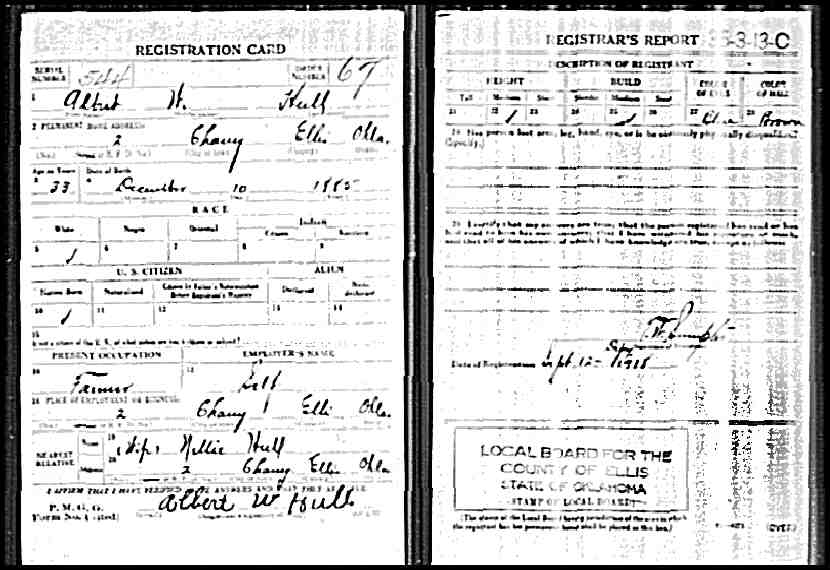 REGISTRATION CARD
SERIAL NUMBER 544
ORDER NUMBER 67
1 Albert W. Hull
2 PERMANENT HOME ADDRESS
2 Ellis Okla.
Age in Years Date of Birth
33 December 10 1885
RACE
White Negro Oriental Indian
Citizen
5 6 7 8 9
U. S. CITIZEN ALIEN
Native Born Naturalized Citizen by Father's Naturalization Before Registrant's Majority Declarant Non-declarant
10 11 12 13 14
15
PRESENT OCCUPATION EMPLOYER'S NAME
16 17
Farmer Self
18 PLACE OF EMPLOYMENT OR BUSINESS
2 Ellis Okla.
NEAREST RELATIVE
Name 19 (Wife) Nellie Hull
Address 20 2 Ellis Okla
P. M. G. O.
Albert W Hull
REGISTRAR'S REPORT 3-3-13-C
DESCRIPTION OF REGISTRANT
HEIGHT BUILD COLOR OF EYES COLOR OF HAIR
Tall Medium Short Slender Medium Stout
21 22 23 24 25 26 27 Blue 28 Brown
29 Has person lost arm, leg, hand, eye, or is he obviously physically disqualified?
(Specify.)
30 I certify that my answers are true; that the person registered has read or has
had read to him his own answers; that I have witnessed his signature or mark,
and that all of his answers of which I have knowledge are true, except as follows:
Date of Registration Sept. 12 - 1918
LOCAL BOARD FOR THE
COUNTY OF ELLIS
STATE OF OKLAHOMA
(STAMP OF LOCAL BOARD)
(The stamp of the Local Board having jurisdiction of the area in which
the registrant has his permanent home shall be placed in this box.)
(OVER)